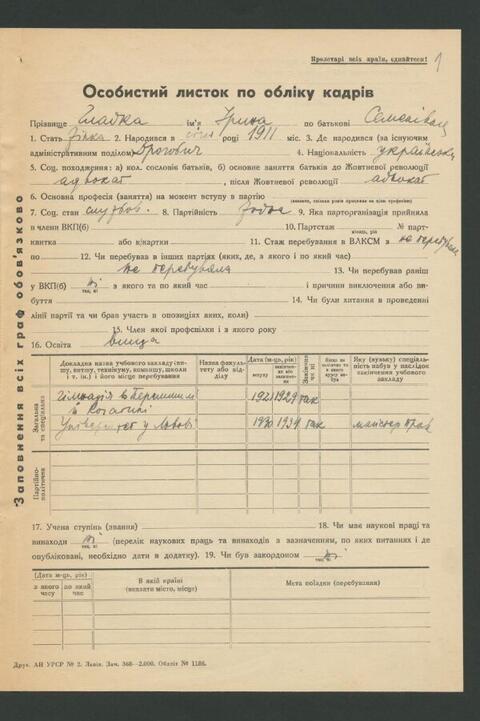 Пролетарі всіх країн, єднайтеся!
1
Особистий листок по обліку кадрів
Прізвище Гладка ім'я Ірина по батькові Семенівна
1. Стать Жінка 2. Народився в січні році 1911 міс. 3. Де народився (за існуючим
адміністративним поділом) Дрогобич 4. Національність українська
5. Соц. походження: а) кол. сословіє батьків, б) основне заняття батьків до Жовтневої революції
адвокат, після Жовтневої революції адвокат
6. Основна професія (заняття) на момент вступу в партію
(вказати, скільки років працював на цією професією)
7. Соц. стан службов. 8. Партійність 9. Яка парторганізація прийняла
в члени ВКП(б) 10. Партстаж № парт-
місяць, рік
квитка або к/картки 11. Стаж перебування в ВЛКСМ з не перебувала
по 12. Чи перебував в інших партіях (яких, де, з якого і по який час)
не перебувала 13. Чи перебував раніш
у ВКП(б) ні з якого та по який час і причини виключення або ви-
так, ні
буття 14. Чи були хитання в проведенні
лінії партії та чи брав участь в опозиціях (яких, коли)
15. Член якої профспілки і з якого року
16. Освіта вища
Заповнення всіх граф обов'язково
Докладна назва учбового закладу (ви-
шу, втишу, технікуму, комвишу, школи
і т. ін.) і його місце знаходження
Назва факуль-
тету або від-
ділу
Дата (м-ць, рік)
вступу
закінчен-
ня або
вибуття
Закінчив
чи ні
Яку (вузьку) спеціаль-
ність набув у наслідок
закінчення учбового
закладу
Загальна
та спеціальна
Гімназія в Перемишлі 1920 1929 так
й Рогатині
Університет у Львові 1930 1934 так майстер прав
Партійно-
політична
17. Учена ступінь (звання) 18. Чи має наукові праці та
винаходи ні (перелік наукових праць та винаходів з зазначенням, по яких питаннях і де
так, ні
опубліковані, необхідно дати в додатку). 19. Чи був закордоном ні
так, ні
(Дата м-ць, рік)
з якого
часу
по який
час
В якій країні
(вказати місто, місце)
Мета поїздки (перебування)
Друк. АН УРСР № 2. Львів. Зам. 368—2.000. Обліт № 1186.